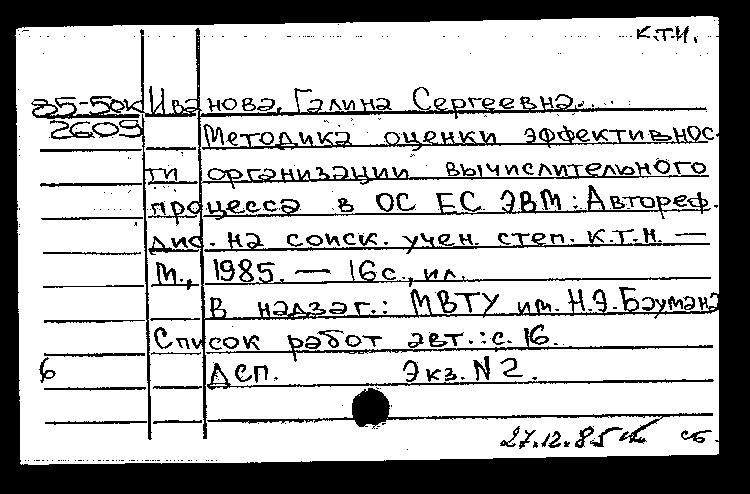 К.Т.Н.
85-50к Иванова, Галина Сергеевна.
2609 Методика оценки эффективнос-
ти организации вычислительного
процесса в ОС ЕС ЭВМ : Автореф.
дис. на соиск. учен. степ. к.т.н. —
М., 1985. — 16с., ил.
В надзаг.: МВТУ им. Н.Э.Баумана
Список работ авт.: с. 16.
6 ДСП. Экз. N 2.
27.12.85 сб.